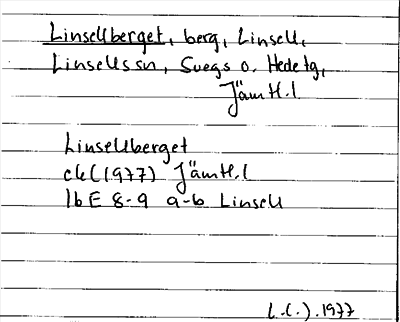 Linsellberget, berg, Linsell,
Linsells sn, Svegs o. Hede tg,
Jämtl.l
Linsellberget
ek(1977) Jämtl.l
16 E 8-9 a-b Linsell
L.(.).1977